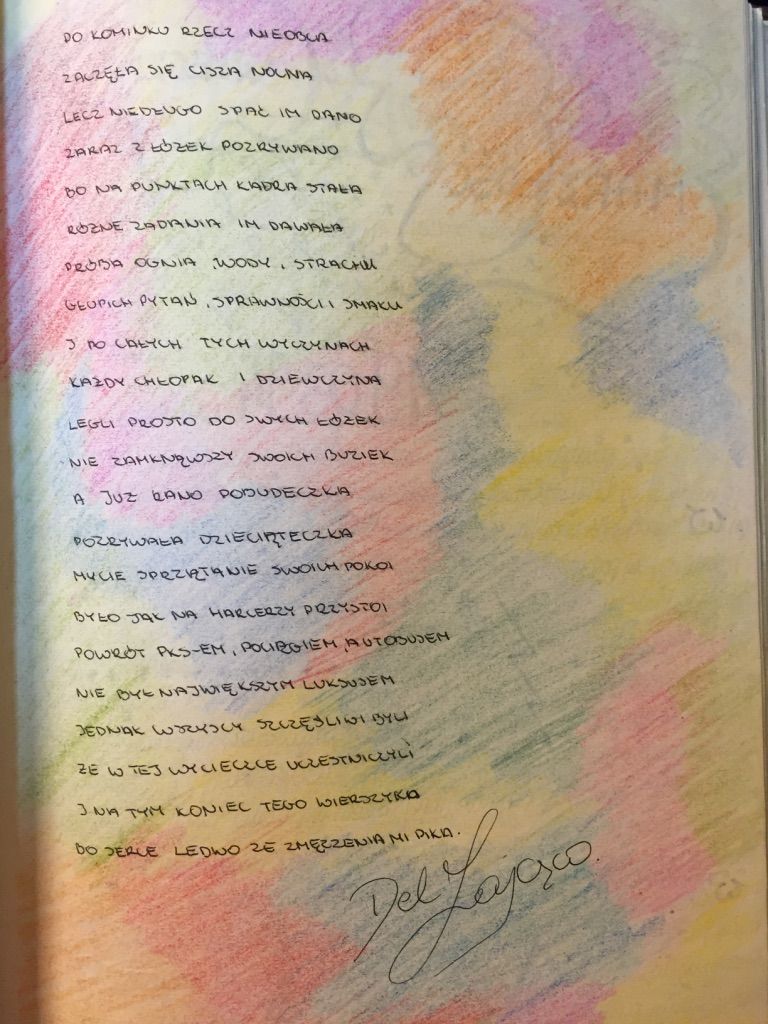 PO KOMINKU RZECZ NIEOBCA
ZACZĘŁA SIĘ CISZA NOCNA
LECZ NIEDŁUGO SPAĆ IM DANO
ZARAZ Z ŁÓŻEK POZRYWANO
BO NA PUNKTACH KADRA STAŁA
RÓŻNE ZADANIA IM DAWAŁA
PRÓBA OGNIA, WODY, STRACHU
GŁUPICH PYTAŃ, SPRAWNOŚCI I SMAKU
I PO CAŁYCH TYCH WYCZYNACH
KAŻDY CHŁOPAK I DZIEWCZYNA
LEGLI PROSTO DO SWYCH ŁÓŻEK
NIE ZAMKNĄWSZY SWOICH BUZIEK
A JUŻ RANO POBUDECZKA
POZRYWAŁA DZIECIĄTECZKA
MYCIE SPRZĄTANIE SWOICH POKOI
BYŁO JAK NA HARCERZY PRZYSTOI
POWRÓT PKS-EM, POCIĄGIEM, AUTOBUSEM
NIE BYŁ NAJWIĘKSZYM LUKSUSEM
JEDNAK WSZYSCY SZCZĘŚLIWI BYLI
ŻE W TEJ WYCIECZCE UCZESTNICZYLI
I NA TYM KONIEC TEGO WIERSZYKA
BO SERCE LEDWO ZE ZMĘCZENIA MI PIKA.